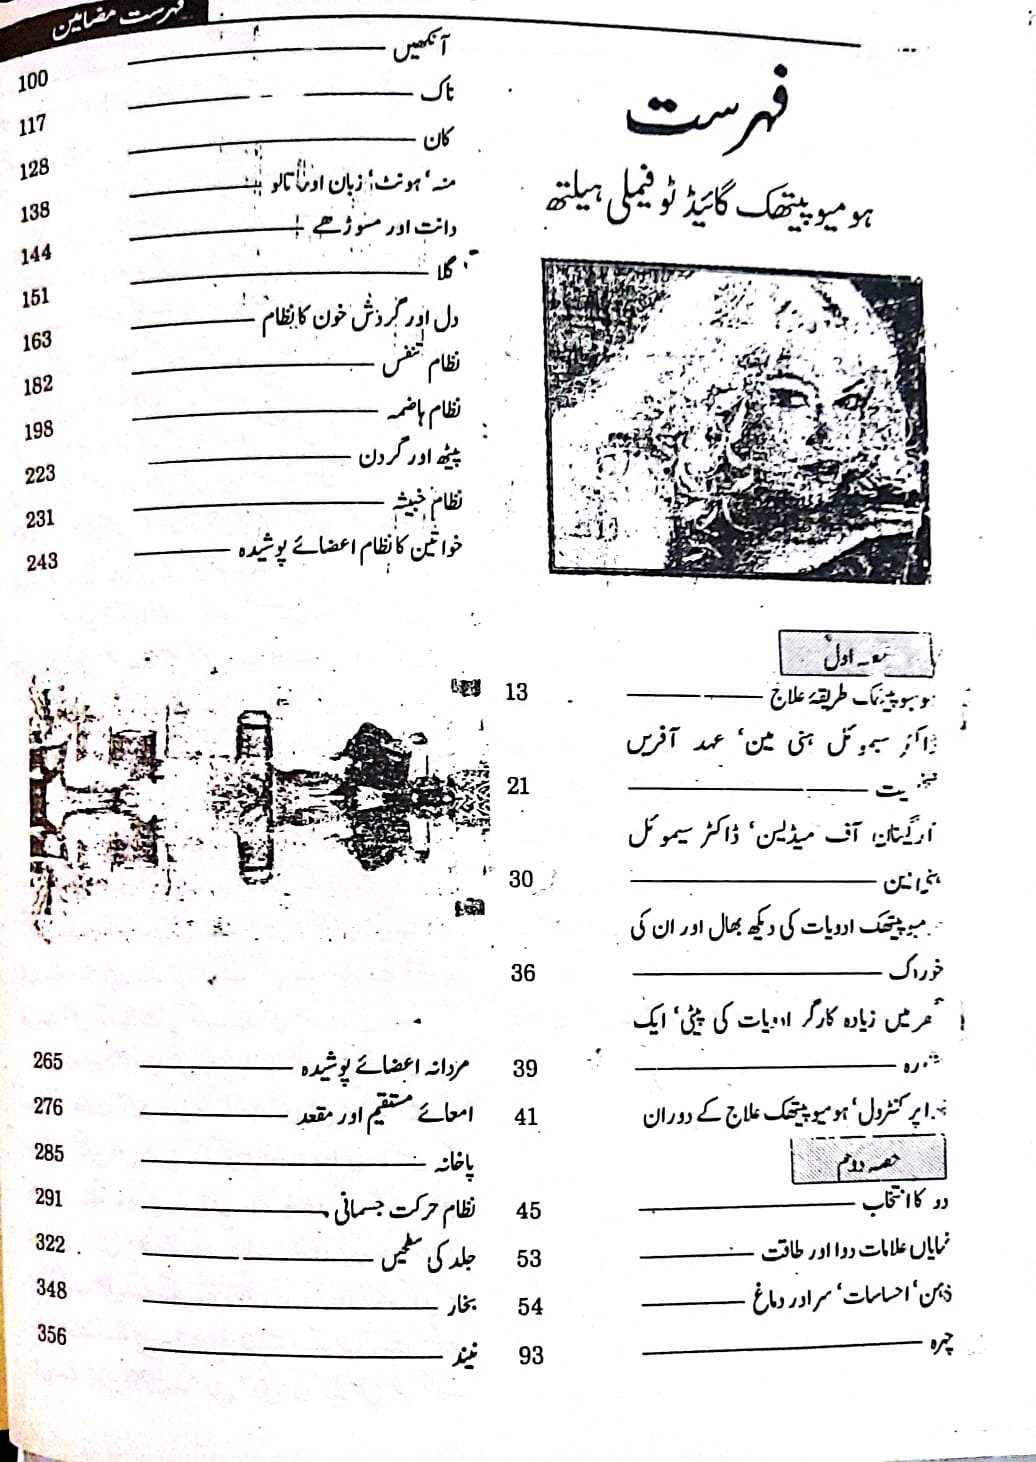 فہرست مضامین
فہرست
ہومیوپیتھک گائیڈ ٹو فیملی ہیلتھ
حصہ اول
ہومیوپیتھک طریقۂ علاج 13
ڈاکٹر سیموئل ہنی مین، عہد آفریں
شخصیت 21
آرگینان آف میڈیسن، ڈاکٹر سیموئل
ہنی مین 30
ہومیوپیتھک ادویات کی دیکھ بھال اور ان کی
خوراک 36
گھر میں زیادہ کارگر ادویات کی پیٹی، ایک
مشورہ 39
کنٹرول، ہومیوپیتھک علاج کے دوران 41
حصہ دوم
دوا کا انتخاب 45
نمایاں علامات دوا اور طاقت 53
ذہن، احساسات، سر اور دماغ 54
چہرہ 93
آنکھیں 100
ناک 117
کان 128
منہ، ہونٹ، زبان اور تالو 138
دانت اور مسوڑھے 144
گلا 151
دل اور گردش خون کا نظام 163
نظام تنفس 182
نظام ہاضمہ 198
پیٹھ اور گردن 223
نظام خبیثہ 231
خواتین کا نظام اعضائے پوشیدہ 243
مردانہ اعضائے پوشیدہ 265
امعائے مستقیم اور مقعد 276
پاخانہ 285
نظام حرکت جسمانی 291
جلد کی سطحیں 322
بخار 348
نیند 356